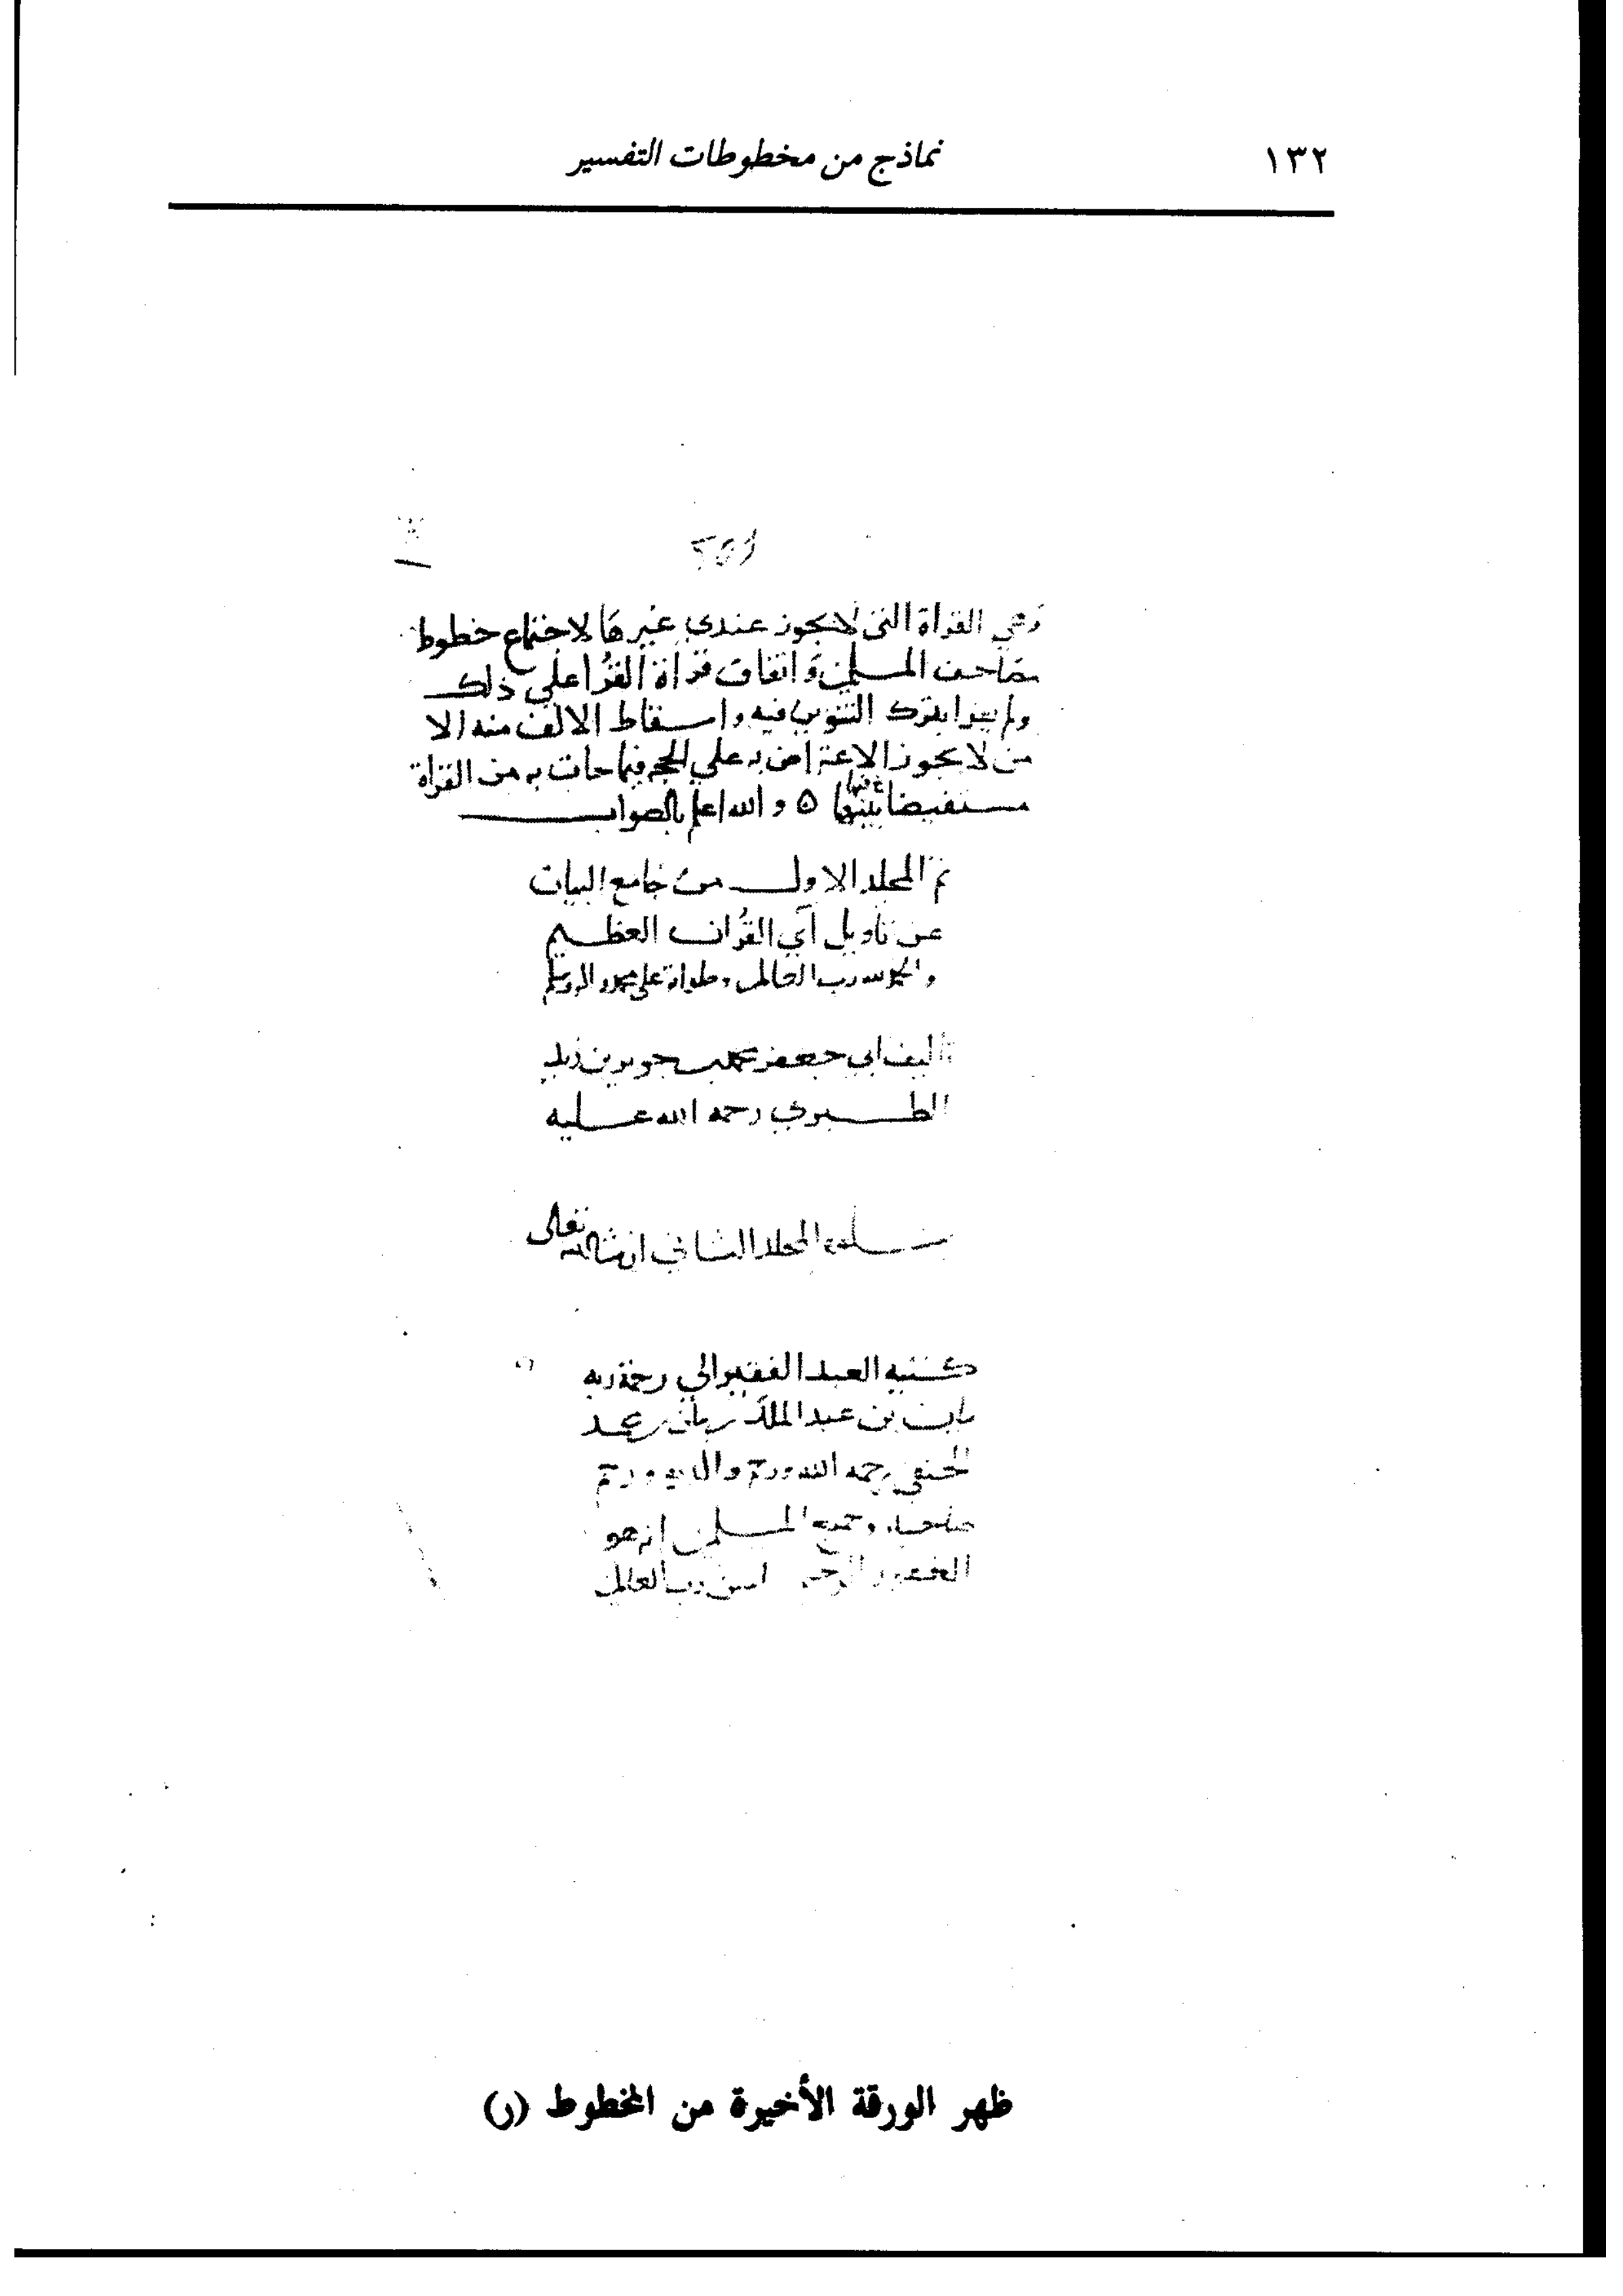 ١٣٢
نماذج من مخطوطات التفسير
وهي القراة التي لا يجوز عندي غيرها لاجتماع خطوط
مصاحف المسلمين واتفاق قراة القرا على ذلك
ولم يقرا بترك التنوين فيه واسقاط الالف منه الا
من لا يجوز الاعتراض به علي الحجه فيما جات به من القراة
مستفيضا بينها ٥ والله اعلم بالصواب
تم المجلد الاول من جامع البيان
عن تاويل آي القُران العظيم
والحمد لله رب العالمين وصلواته على محمد واله وسلم
تاليف ابي جعفر محمد بن جرير بن يزيد
الطبري رحمة الله عليه
يتلوه المجلد الثاني ان شا الله تعالى
كتبه العبد الفقير الي رحمة ربه
بن عبد الملك بن محمد
الحنفي رحمه الله ورحم والديه ورحم
صاحبه وجميع المسلمين انه هو
الغفور الرحيم امين رب العالمين
ظهر الورقة الأخيرة من المخطوط (ر)